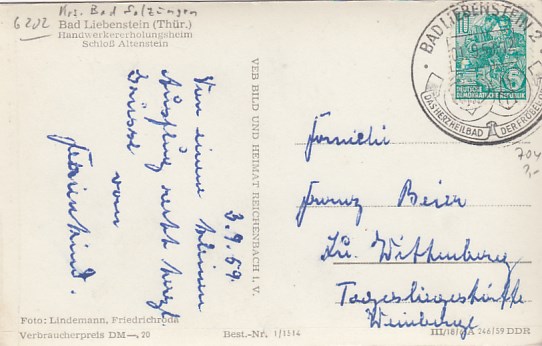 6202 Krs. Bad Salzungen
Bad Liebenstein (Thür.)
Handwerkererholungsheim
Schloß Altenstein
3.9.59
Von einem kleinen
Ausflug recht herzl
Grüsse
vom
VEB BILD UND HEIMAT REICHENBACH i. V.
BAD LIEBENSTEIN 2
DAS HERZHEILBAD DER FRÖBEL
10
DEUTSCHE
DEMOKRATISCHE REPUBLIK
704
Franz Beier
Lu. Wittenberg
Weinberge
Foto: Lindemann, Friedrichroda
Verbraucherpreis DM —, 20
Best.-Nr. 1/1514
III/18/6 A 246/59 DDR